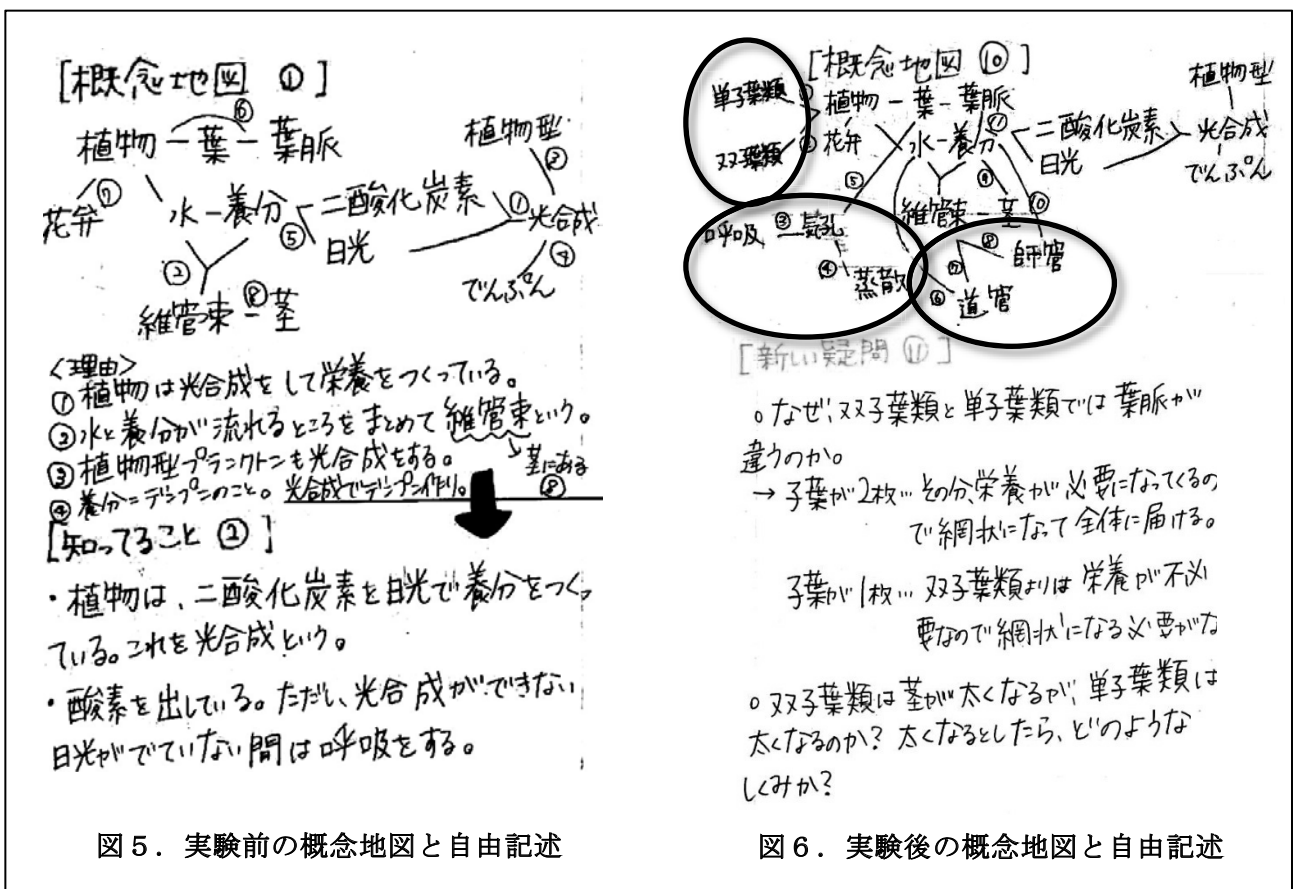 [概念地図 ①]
⑥
植物 ー 葉 ー 葉脈
植物型
⑦
③
花弁
水 ー 養分
二酸化炭素
①
光合成
⑤
日光
②
④
でんぷん
維管束 ー 茎
⑧
<理由>
① 植物は光合成をして栄養をつくっている。
② 水と養分が流れるところをまとめて維管束という。
③ 植物型プランクトンも光合成をする。
↓茎にある
⑧
④ 養分=デンプンのこと。光合成でデンプン作り。
[知ってること ②]
・植物は、二酸化炭素を日光で養分をつくっ
ている。これを光合成という。
・酸素を出している。ただし、光合成ができない
日光がでていない間は呼吸をする。
図5.実験前の概念地図と自由記述
[概念地図 ⑩]
単子葉類
植物 ー 葉 ー 葉脈
植物型
双子葉類
花弁
水 ー 養分
二酸化炭素
光合成
日光
でんぷん
⑤
⑨
⑩
呼吸
③
気孔
維管束 ー 茎
⑧
師管
④
蒸散
⑦
⑥
道管
[新しい疑問 ⑪]
○なぜ、双子葉類と単子葉類では葉脈が
違うのか。
→ 子葉が2枚… その分、栄養が必要になってくるの
で網状になって全体に届ける。
子葉が1枚… 双子葉類よりは栄養が不必
要なので網状になる必要がな
○双子葉類は茎が太くなるが、単子葉類は
太くなるのか? 太くなるとしたら、どのような
しくみか?
図6.実験後の概念地図と自由記述